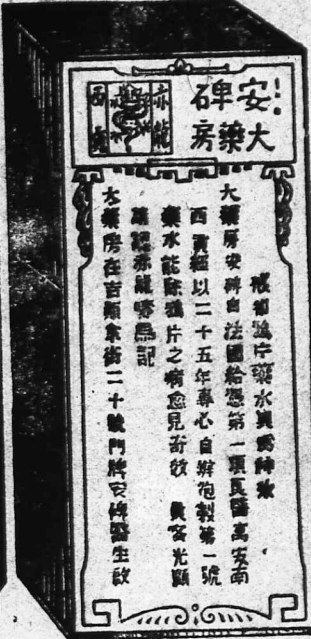 安碑
大藥房
赤龍
戒却鴉片藥水真爲神效
大藥房安碑自法國給憑第一項良醫寓安南
西貢經以二十五年專心自辦炮製第一號
藥水能除鴉片之病愈見奇效 貴客光顧
請認赤龍嘜爲記
大藥房在吉顛拿街二十號門牌安碑醫生啟